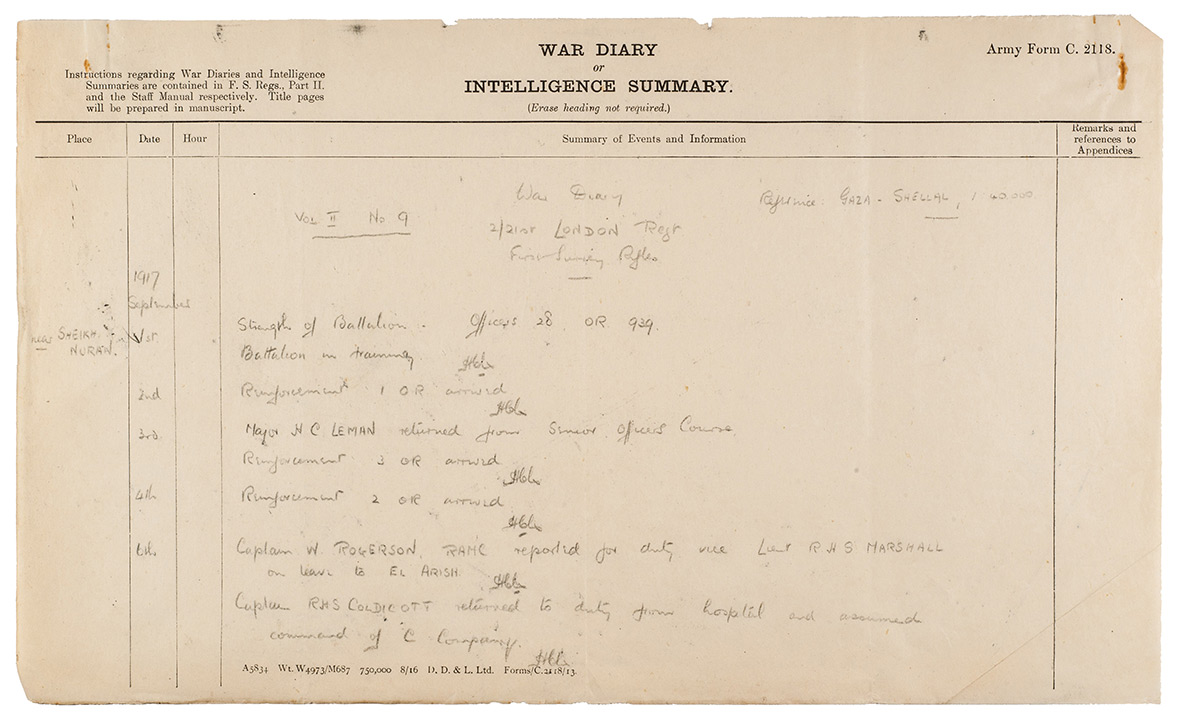 WAR DIARY
or
INTELLIGENCE SUMMARY.
(Erase heading not required.)
Army Form C. 2118.
Instructions regarding War Diaries and Intelligence
Summaries are contained in F. S. Regs., Part II.
and the Staff Manual respectively. Title pages
will be prepared in manuscript.
Place Date Hour Summary of Events and Information Remarks and
references to
Appendices
War Diary
Reference GAZA - SHELLAL, 1/40.000
Vol II No 9
2/21st LONDON Regt
First Surrey Rifles
1917
September
near SHEIKH
NURAN.
1st Strength of Battalion - Officers 28 OR 939.
Battalion in training.
2nd Reinforcement 1 OR arrived
3rd Major H C LEMAN returned from Senior Officers Course.
Reinforcement 3 OR arrived
4th Reinforcement 2 OR arrived
6th Captain W. ROGERSON, RAMC reported for duty vice Lieut R H S MARSHALL
on leave to EL ARISH.
Captain RHS COLDICOTT returned to duty from hospital and assumed
command of C Company.
A5834 Wt. W4973/M687 750,000 8/16 D. D. & L. Ltd. Forms/C.2118/13.